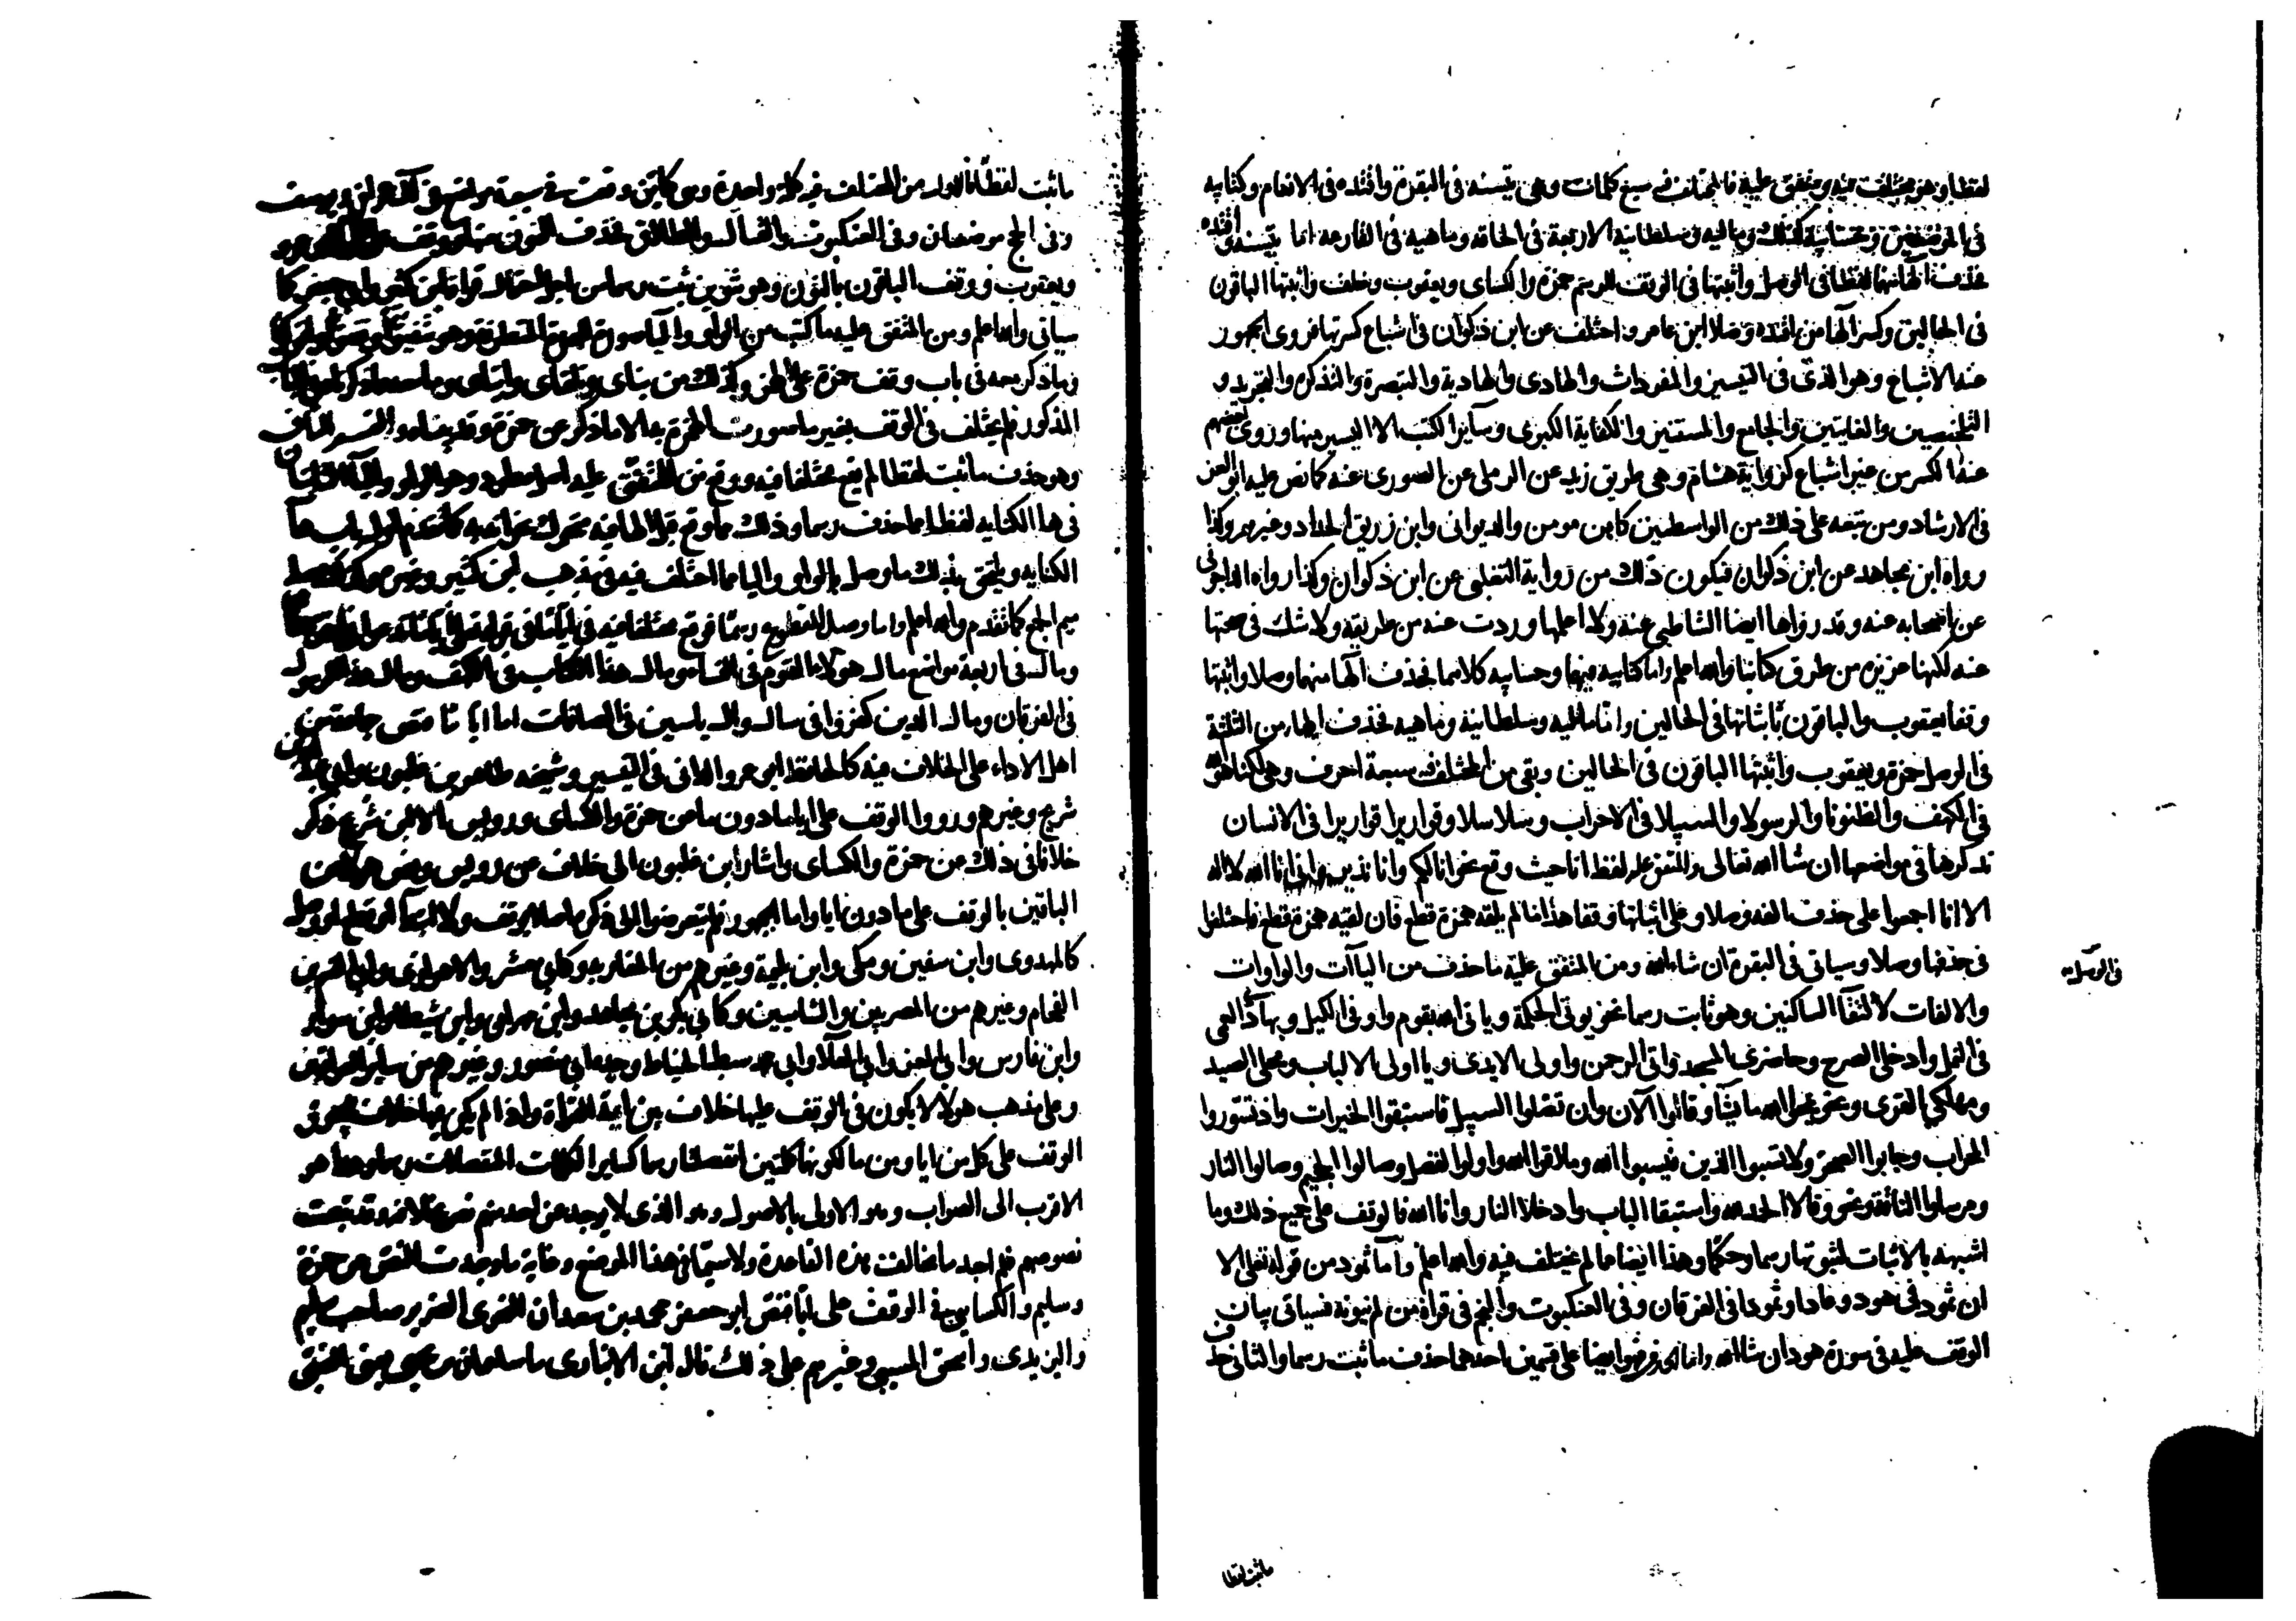 لفظا وهو مختلف فيه ومتفق عليه فالمختلف فيه سبع كلمات وهي يتسنه في البقرة واقتده في الانعام وكتابيه
في الموضعين وحسابيه كذلك وماليه وسلطانيه الاربعة في الحاقه وماهيه في القارعه اما يتسنه واقتده
فحذف الهاء منهما لفظا في الوصل واثبتها في الوقف للرسم حمزة والكساى ويعقوب وخلف واثبتها الباقون
في الحالين وكسر الها من اقتده وصلا ابن عامر واختلف عن ابن ذكوان في اشباع كسرتها فروى الجمهور
عنه الاشباع وهو الذى في التيسير والمفردات والهادى والهداية والتبصرة والتذكرة والتجريد و
التلخيصين والغايتين والجامع والمستنير والكفاية الكبرى وسائر الكتب الا اليسير منها وروى بعضهم
عنه الكسر من غير اشباع كرواية هشام وهي طريق زيد عن الرملى عن الصورى عنه كما نص عليه ابو العز
في الارشاد ومن تبعه على ذلك من الواسطيين كابن مومن والديوانى وابن زريق الحداد وغيرهم وكذا
رواه ابن مجاهد عن ابن ذكوان فيكون ذلك من رواية التغلبى عن ابن ذكوان وكذا رواه الدانى
عن اصحابه عنه وقد رواها ايضا الشاطبى عنه ولا اعلمها وردت عنه من طريقه ولا شك في صحتها
عنه لكنها عزيزه من طرق كتابنا والله اعلم واما كتابيه فيهما وحسابيه كلاهما فحذف الها منهما وصلا واثبتها
وقفا يعقوب والباقون باثباتها في الحالين واما ماليه وسلطانيه وماهيه فحذف الها من الثلثة
في الوصل حمزة ويعقوب واثبتها الباقون في الحالين وبقى من المختلف فيه سبعة احرف وهى لكنا هو
في الكهف والظنونا والرسولا والسبيلا في الاحزاب وسلاسلا وقواريرا قواريرا في الانسان
نذكرها في مواضعها ان شا الله تعالى والمتفق عليه لفظ انا حيث وقع نحو انا لكم وانا نذير واننى انا الله لا اله
الا انا اجمعوا على حذف الفه وصلا وعلى اثباتها وقفا هذا ما لم يلقه همزة قطع فان لقيه همزة قطع فاختلفوا
في حذفها وصلا وسياتى في البقرة ان شاءالله ومن المتفق عليه ما حذف من الياآت والواوات
في الوصل
والالفات لالتقا الساكنين وهو ثابت رسما نحو يوتى الحكمة وياتى الله بقوم واوفى الكيل وبهادى العمى
في النمل وادخلى الصرح وحاضرى المسجد واتى الرحمن واولى الايدى ويا اولى الالباب ومحلى الصيد
ومهلكى القرى ونحو يمحوا الله ما يشا وقالوا الآن وان تضلوا السبيل فاستبقوا الخيرات واذ تسوروا
المحراب وجابوا الصخر ولا تسبوا الذين فيسبوا الله وملاقوا الله واولوا الفضل وصالوا الجحيم وصالوا النار
ومرسلوا الناقة ونحو وقالا الحمد لله واستبقا الباب وادخلا النار وانا الله فالوقف على جميع ذلك وما
اشبهه بالاثبات لثبوتها رسما وحكما وهذا ايضا مما لم يختلف فيه والله اعلم واما ثمود من قوله تعالى الا
ان ثمود في هود وعادا وثمودا في الفرقان وفى العنكبوت والنجم في قراة من لم ينونه فسياتى بيان
الوقف عليه في سورة هود ان شا الله واما وهو ايضا على قسمين احدهما حذف ما ثبت رسما والثانى حذف
ما ثبت لفظا
ما ثبت لفظا فالاول من المختلف فيه كلمة واحدة وهى كاين وقعت في سبعة مواضع في آل عمران ويوسف
وفى الحج موضعان وفى العنكبوت والقتال والطلاق فحذف النون منها ووقف على
ويعقوب ووقف الباقون بالنون وهو تنوين ثبت رسما من اجل احتمال قراة ابن كثير وابى جعفر كما
سياتى والله اعلم ومن المتفق عليه ما كتب من الواو واليا صورة للهمزة المتطرفة وهو
وما ذكر معه في باب وقف حمزة على الهمز وكذلك من نباى وتلقاى وايتاى وما
المذكور فلم يختلف في الوقف بغير ما صورت الهمزة به الا ما ذكر عن حمزة وقد بيناه والقسم الثانى
وهو حذف ما ثبت لفظا لم يقع مختلفا فيه ووقع من المتفق عليه اصل مطرد وهو الواو واليا الثابتتان
في ها الكنايه لفظا مما حذف رسما وذلك فيما وقع قبل الها فيه متحرك نحو انه به كما تقدم اول باب ها
الكنايه ويلتحق بذلك ما وصل بالواو واليا مما اختلف فيه في مذهب ابن كثير وغيره وكذلك صلة
ميم الجمع كما تقدم والله اعلم واما وصل المقطوع رسما فوقع مختلفا فيه في اياما في قوله تعالى اياما تدعوا
ومال في اربعة مواضع مال هولاء القوم في النسا ومال هذا الكتاب في الكهف ومال هذا الرسول
في الفرقان ومال الذين كفروا في سال وال ياسين في الصافات اما ايا ما فنص جماعة من
اهل الاداء على الخلاف فيه كالحافظ ابى عمرو الدانى في التيسير وشيخه طاهر بن غلبون وابى عبد الله بن
شريح وغيرهم ورووا الوقف على ايا دون ما عن حمزة والكساى ورويس الا ابن شريح ذكر
خلافا في ذلك عن حمزة والكساى واشار ابن غلبون الى خلاف عن رويس ونص هولاء عن
الباقين بالوقف على ما دون ايا واما الجمهور فلم يتعرضوا الى ذكره اصلا بوقف ولا ابتدآ او قطع او وصل
كالمهدوى وابن سفين ومكى وابن بليمة وغيرهم من المغاربه وكابى معشر والاهوازى وابى القسم بن
الفحام وغيرهم من المصريين والشاميين وكابى بكر بن مجاهد وابن مهران وابن شيطا وابن سوار
وابن فارس وابى العز وابى العلا وابى محمد سبط الخياط وجده ابى منصور وغيرهم من ساير العراقيين
وعلى مذهب هولاء لا يكون في الوقف عليها خلاف بين ايمة القراة واذا لم يكن فيها خلاف فيجوز
الوقف على كل من ايا ومن ما لكونهما كلمتين انفصلتا رسما كساير الكلمات المنفصلات رسما وهذا هو
الاقرب الى الصواب وهو الاولى بالاصول وهو الذى لا يوجد عن احد منهم نص بخلافه وقد تتبعت
نصوصهم فلم اجد ما يخالف هذه القاعدة ولا سيما في هذا الموضع وغاية ما وجدت النص عن حمزة
وسليم والكساى في الوقف على ايا فنص ابو جعفر محمد بن سعدان النحوى الضرير صاحب سليم
واليزيدى واسحق المسيبى وغيرهم على ذلك قال ابن الانبارى ما سليمان بن يحيى يعنى الضبى